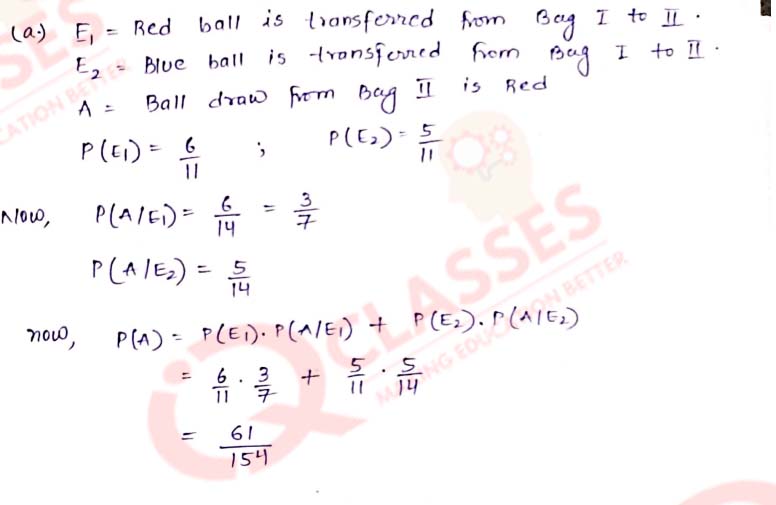 (a.) E₁ = Red ball is transferred from Bag I to II.
E₂ = Blue ball is transferred from Bag I to II.
A = Ball draw from Bag II is Red
P(E₁) = 6/11 ; P(E₂) = 5/11
Now, P(A/E₁) = 6/14 = 3/7
P(A/E₂) = 5/14
now, P(A) = P(E₁).P(A/E₁) + P(E₂).P(A/E₂)
= 6/11 . 3/7 + 5/11 . 5/14
= 61/154
CLASSES
MAKING EDUCATION BETTER